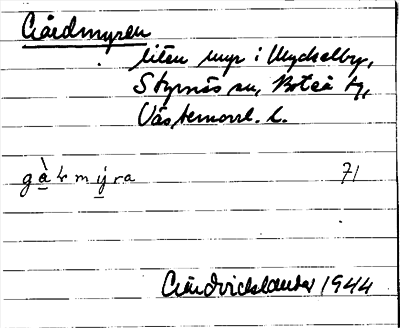 Gårdmyren
liten myr i Myckelby,
Styrnäs sn, Boteå tg,
Västernorrl. l.
gàrmýra 71
1944